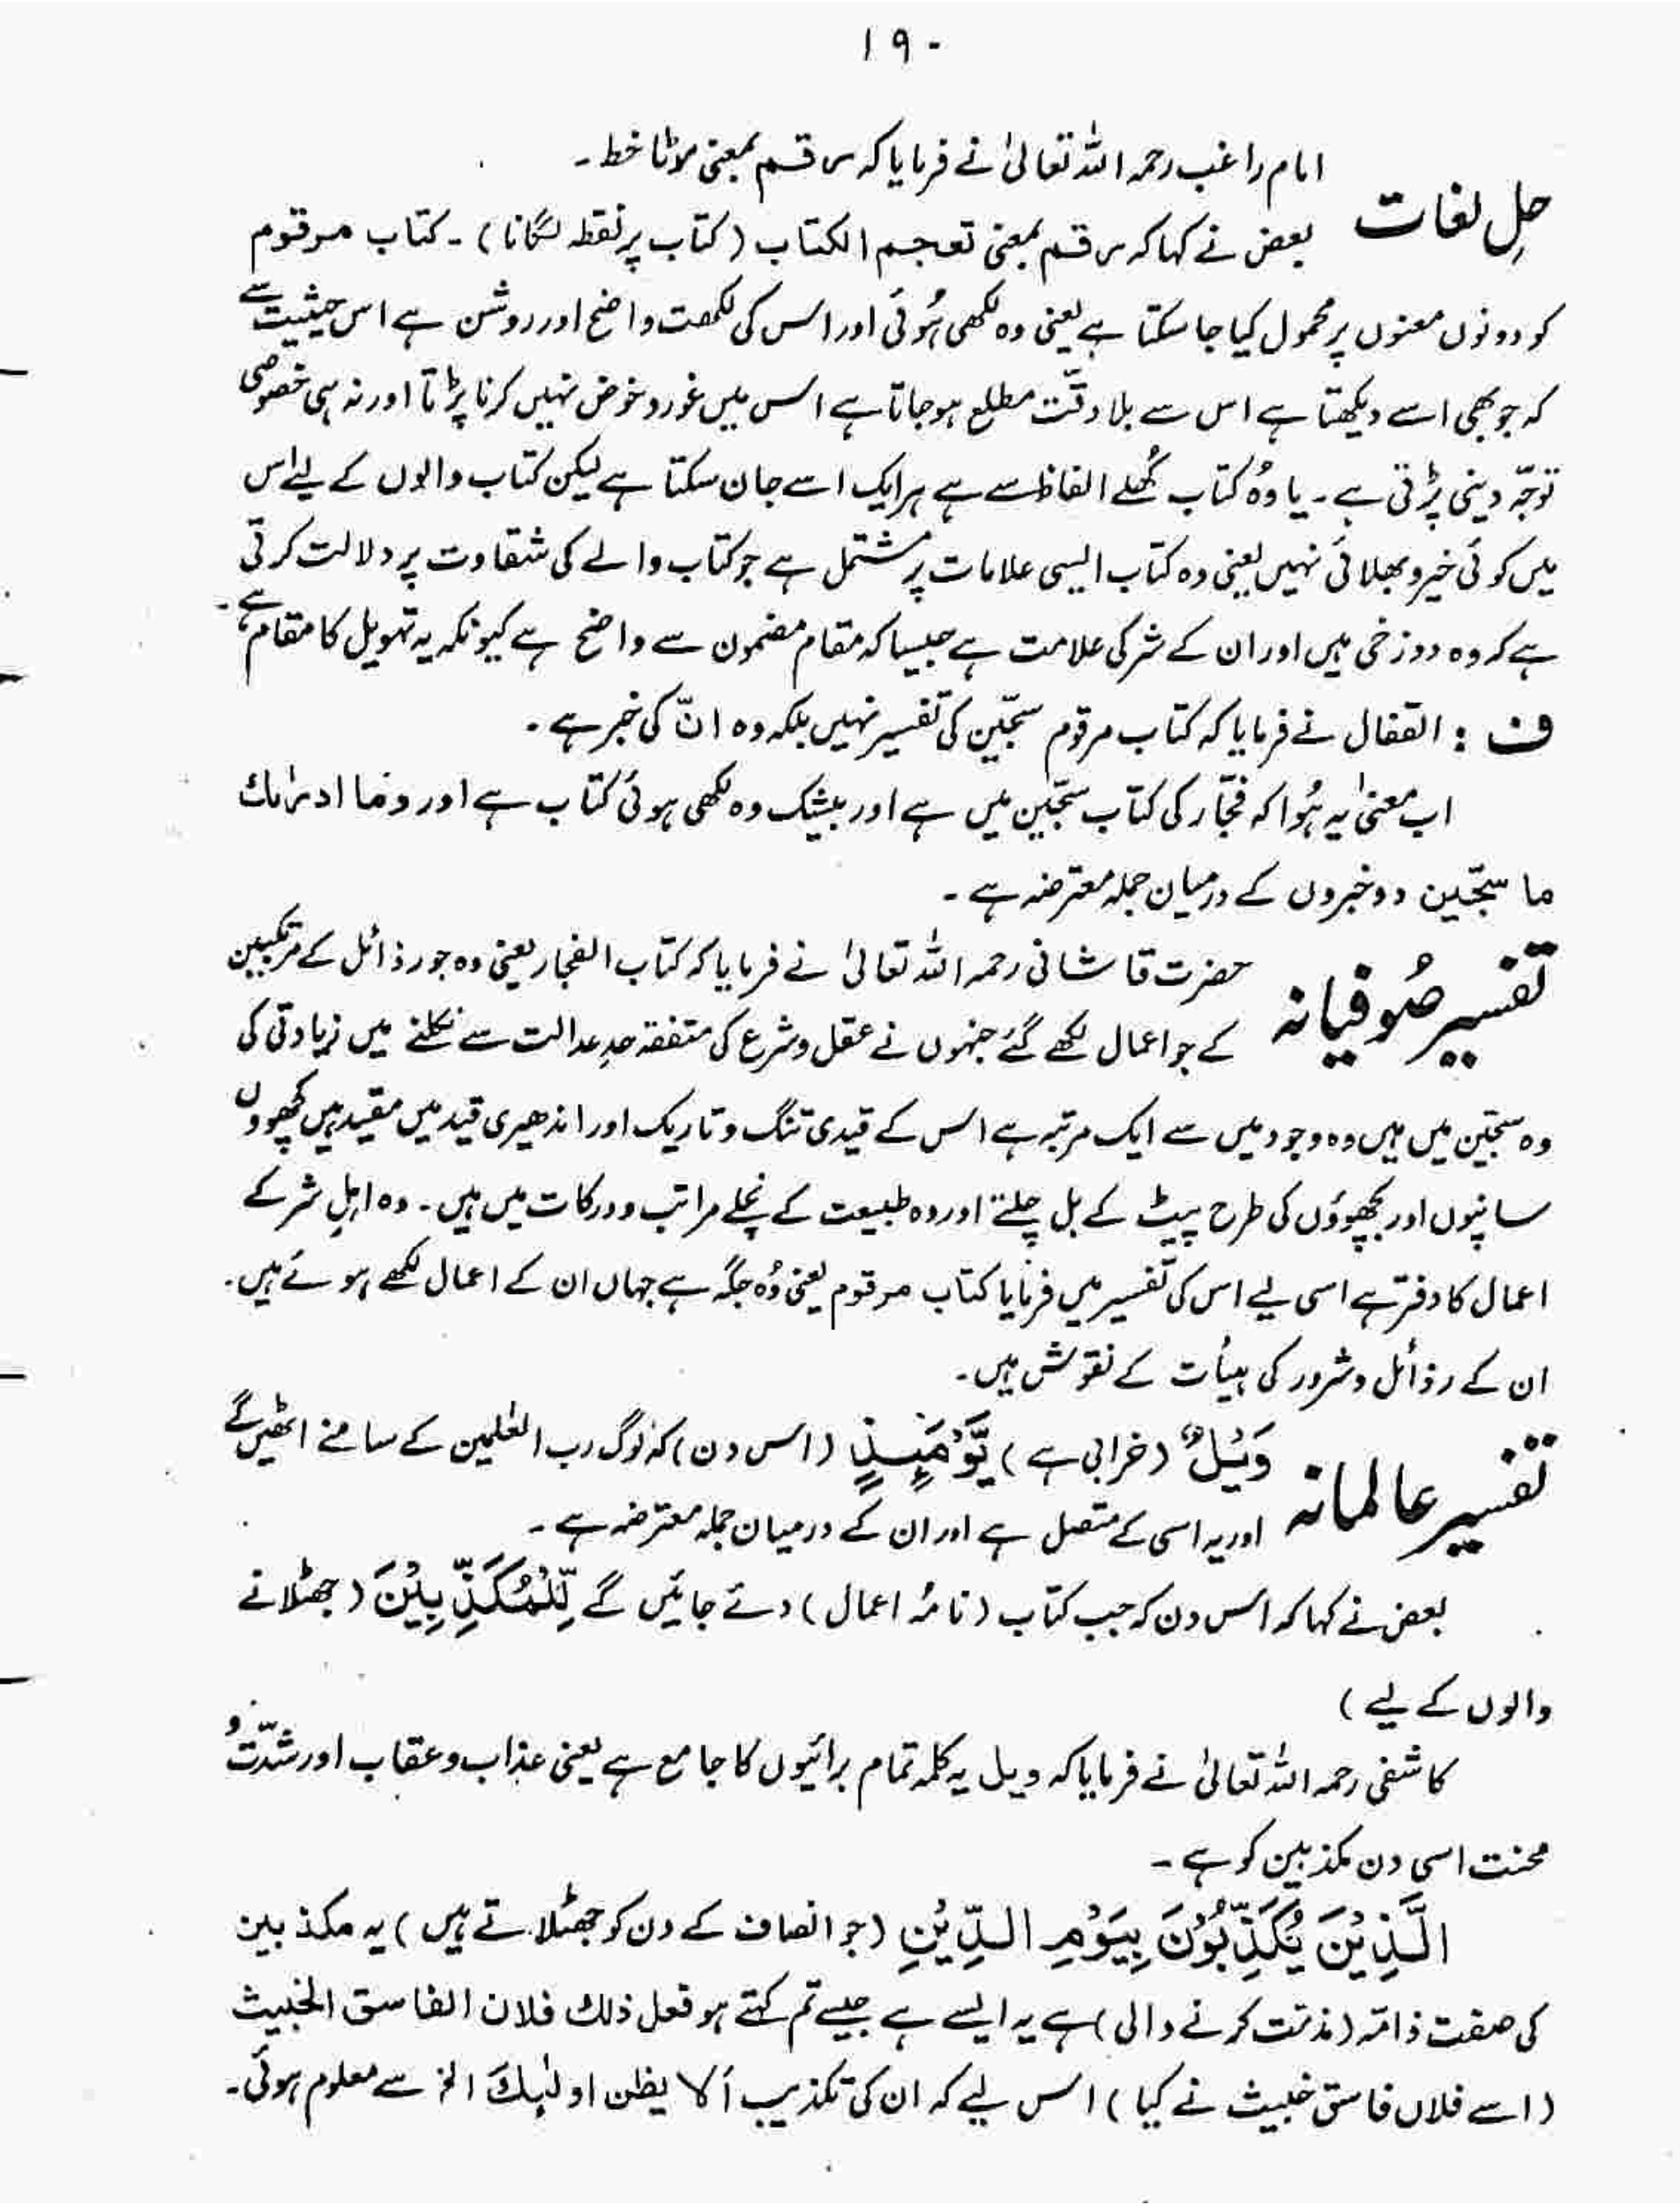 ۱۹۰
امام راغب رحمہ اللہ تعالیٰ نے فرمایا کہ رقم بمعنی موٹا خط۔
حلِ لغات
بعض نے کہا کہ رقم بمعنی تعجم الکتاب (کتاب پر نقطہ لگانا)۔ کتاب مرقوم
کو دونوں معنوں پر محمول کیا جا سکتا ہے یعنی وہ لکھی ہُوئی اور اس کی لکھت واضح اور روشن ہے اس حیثیت سے
کہ جو بھی اسے دیکھتا ہے اس سے بلا دقّت مطلع ہو جاتا ہے اس میں غور و خوض نہیں کرنا پڑتا اور نہ ہی خصوصی
توجّہ دینی پڑتی ہے۔ یا وہُ کتاب کُھلے الفاظ سے ہے ہر ایک اسے جان سکتا ہے لیکن کتاب والوں کے لیے اس
میں کوئی خیر و بھلائی نہیں یعنی وہ کتاب ایسی علامات پر مشتمل ہے جو کتاب والے کی شقاوت پر دلالت کرتی
ہے کہ وہ دوزخی ہیں اور ان کے شر کی علامت ہے جیسا کہ مقام مضمون سے واضح ہے کیونکہ یہ تہویل کا مقام ہے۔
ف : القفال نے فرمایا کہ کتاب مرقوم سجّین کی تفسیر نہیں بلکہ وہ انّ کی خبر ہے۔
اب معنیٰ یہ ہُوا کہ فجّار کی کتاب سجّین میں ہے اور بیشک وہ لکھی ہوئی کتاب ہے اور وما ادرٰىك
ما سجّین دو خبروں کے درمیان جملہ معترضہ ہے۔
تفسیر صُوفیانہ
حضرت قاشانی رحمہ اللہ تعالیٰ نے فرمایا کہ کتاب الفجار یعنی وہ جو رذائل کے مرتکبین
کے جو اعمال لکھے گئے جنہوں نے عقل و شرع کی متفقہ حدِ عدالت سے نکلنے میں زیادتی کی
وہ سجّین میں ہیں وہ وجود میں سے ایک مرتبہ ہے اس کے قیدی تنگ و تاریک اور اندھیری قید میں مقید ہیں کچھووں
سانپوں اور بچھوؤں کی طرح پیٹ کے بل چلتے اور وہ طبیعت کے نچلے مراتب و درکات میں ہیں۔ وہ اہلِ شر کے
اعمال کا دفتر ہے اسی لیے اس کی تفسیر میں فرمایا کتاب مرقوم یعنی وُہ جگہ ہے جہاں ان کے اعمال لکھے ہوئے ہیں۔
ان کے رذائل و شرور کی ہیأت کے نقوش ہیں۔
تفسیر عالمانہ
وَيْلٌ (خرابی ہے) يَّوْمَئِذٍ (اس دن) کہ لوگ رب العٰلمین کے سامنے اٹھیں گے
اور یہ اسی کے متصل ہے اور ان کے درمیان جملہ معترضہ ہے۔
بعض نے کہا کہ اس دن کہ جب کتاب (نامۂ اعمال) دئے جائیں گے لِّلْمُكَذِّبِيْنَ (جھٹلانے
والوں کے لیے)
کاشفی رحمہ اللہ تعالیٰ نے فرمایا کہ ویل یہ کلمہ تمام برائیوں کا جامع ہے یعنی عذاب و عقاب اور شدّت و
محنت اسی دن مکذبین کو ہے۔
الَّذِيْنَ يُكَذِّبُوْنَ بِيَوْمِ الدِّيْنِ (جو انصاف کے دن کو جھٹلاتے ہیں) یہ مکذبین
کی صفت ذامّہ (مذمّت کرنے والی) ہے یہ ایسے ہے جیسے تم کہتے ہو فعل ذلك فلان الفاسق الخبیث
(اسے فلاں فاسق خبیث نے کیا) اس لیے کہ ان کی تکذیب اَلا يظن اولٰٓئِكَ الخ سے معلوم ہوئی۔